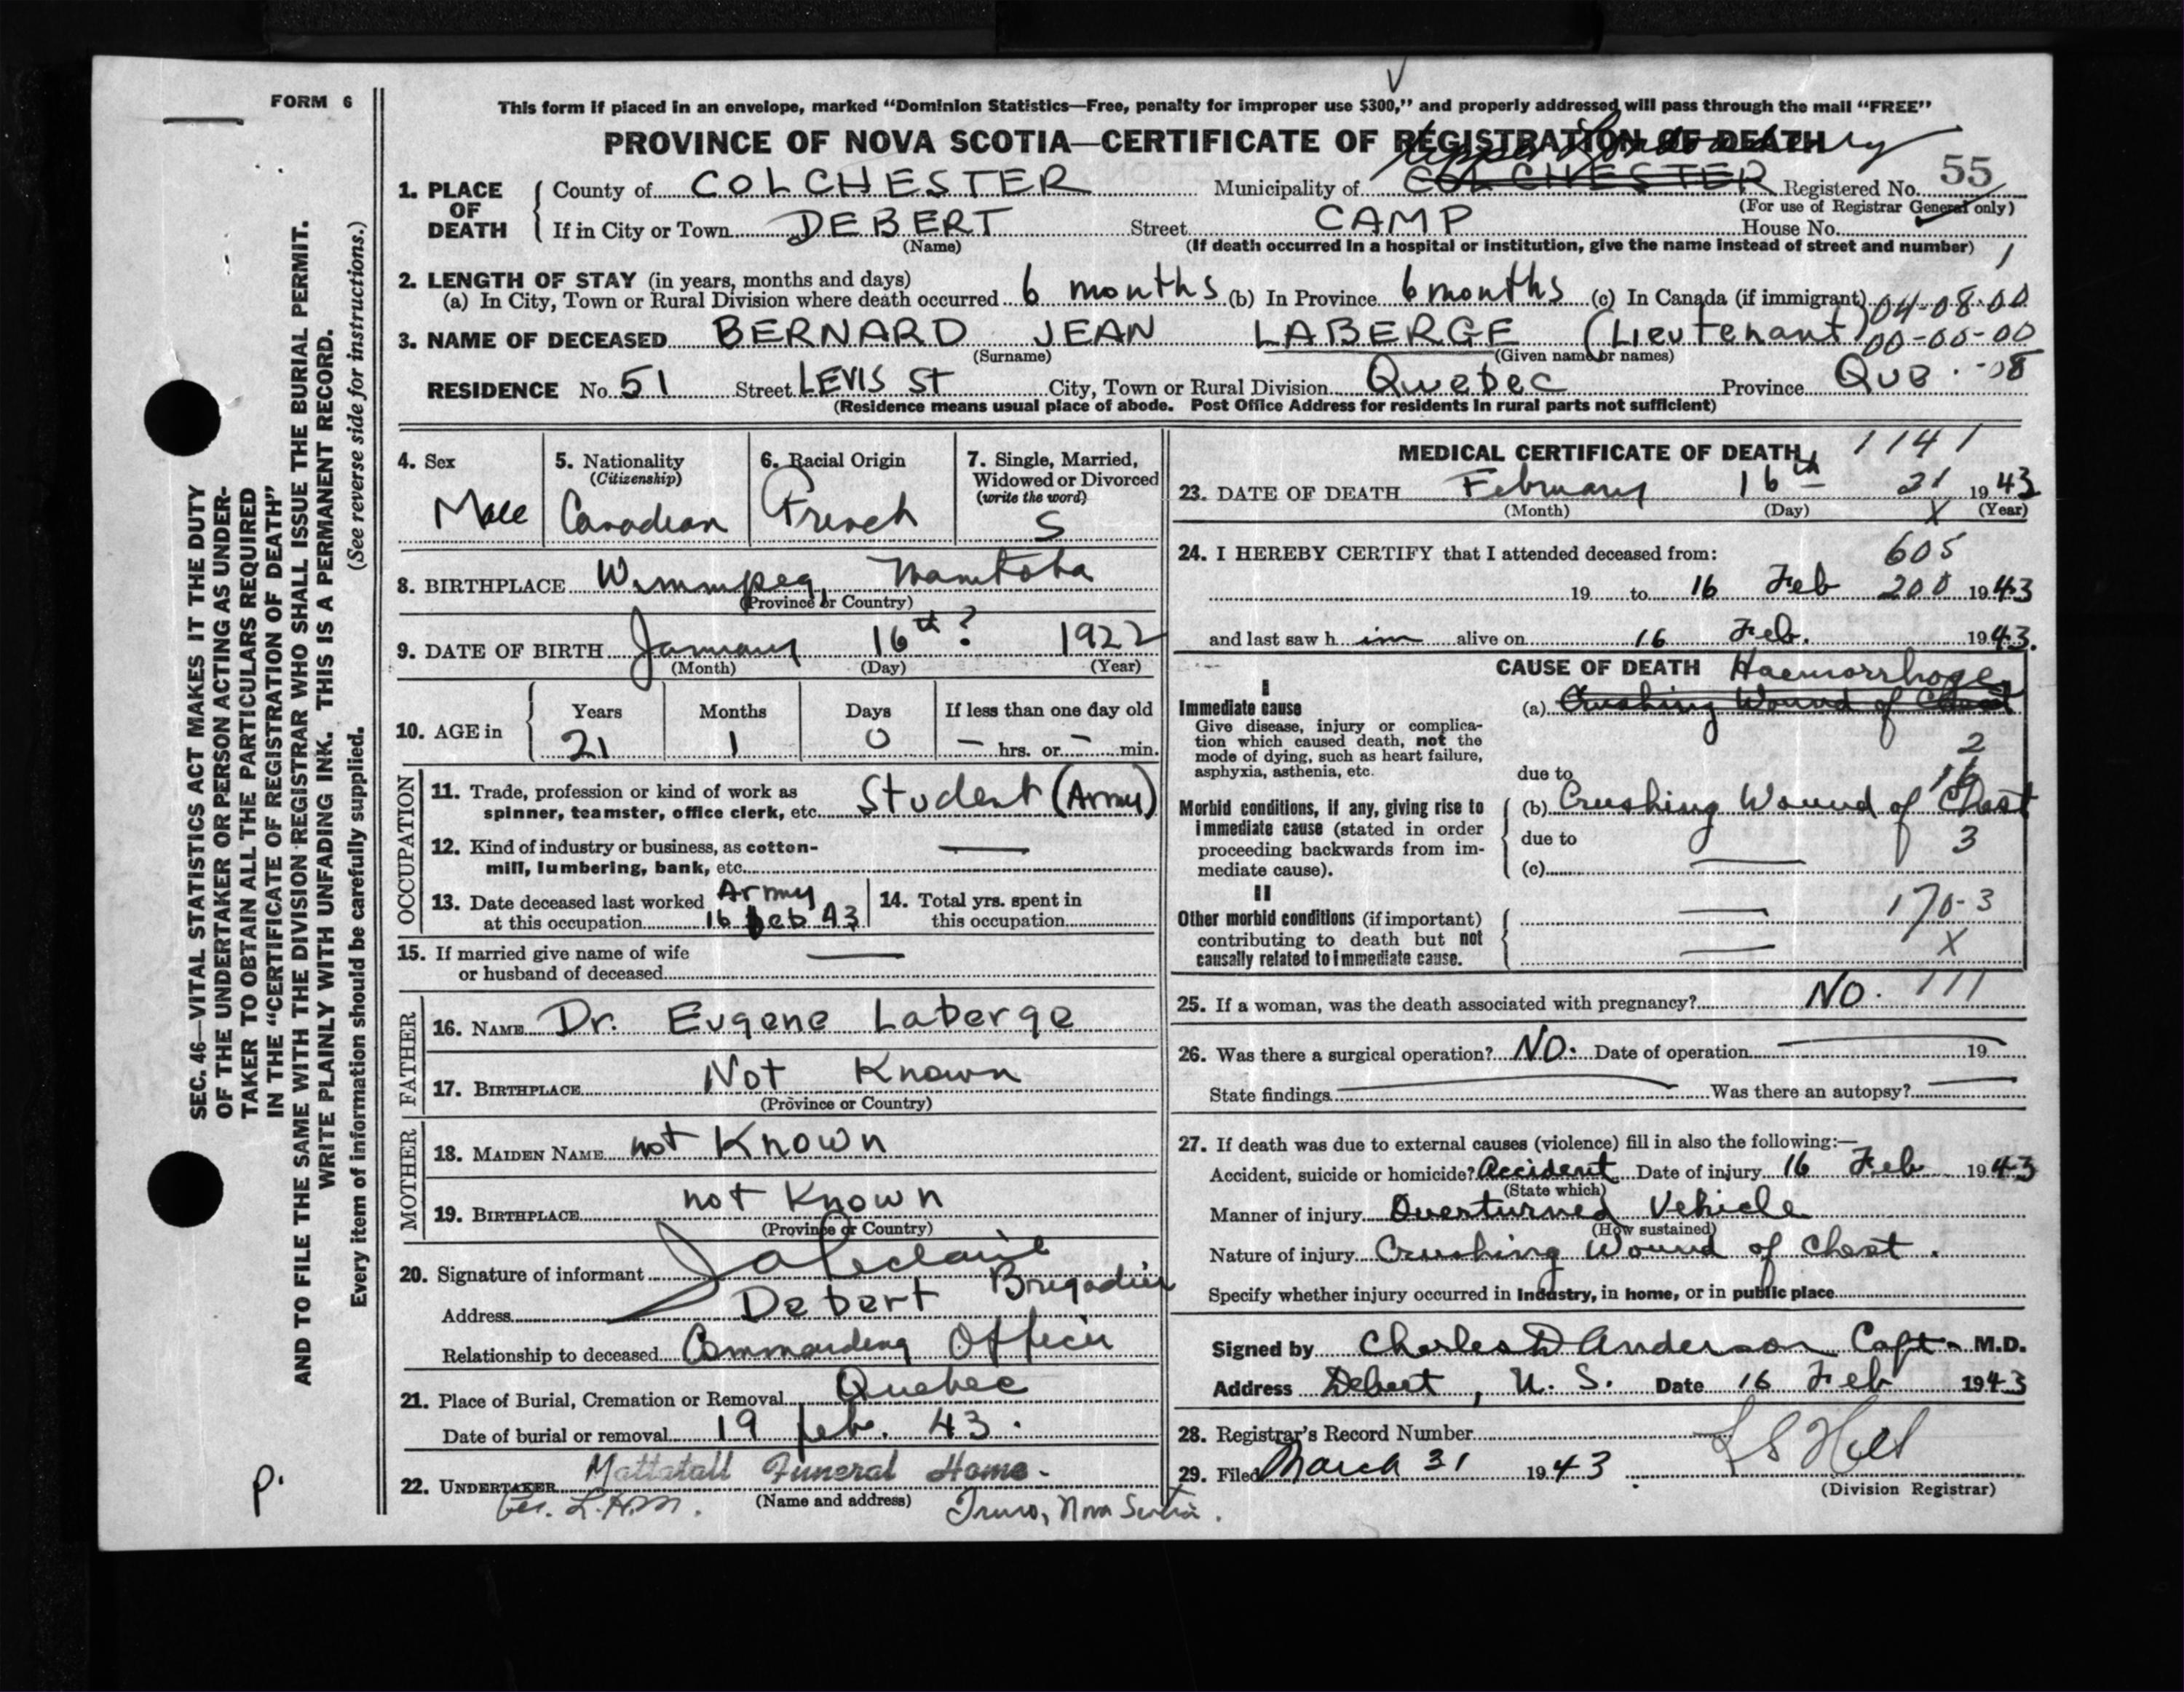 FORM 6
This form if placed in an envelope, marked “Dominion Statistics—Free, penalty for improper use $300,” and properly addressed will pass through the mail “FREE”
PROVINCE OF NOVA SCOTIA—CERTIFICATE OF REGISTRATION OF DEATH
Upper Londonderry
1. PLACE OF DEATH County of COLCHESTER Municipality of COLCHESTER Registered No. 55
(For use of Registrar General only)
If in City or Town DEBERT Street CAMP House No.
(Name) (If death occurred in a hospital or institution, give the name instead of street and number) 1
2. LENGTH OF STAY (in years, months and days)
(a) In City, Town or Rural Division where death occurred 6 months (b) In Province 6 months (c) In Canada (if immigrant) 04-08-00
3. NAME OF DECEASED BERNARD JEAN LABERGE (Lieutenant) 00-00-00
(Surname) (Given name or names)
RESIDENCE No. 51 Street LEVIS ST City, Town or Rural Division Quebec Province QUB -08
(Residence means usual place of abode. Post Office Address for residents in rural parts not sufficient)
4. Sex Male
5. Nationality (Citizenship) Canadian
6. Racial Origin French
7. Single, Married, Widowed or Divorced (write the word) S
8. BIRTHPLACE Winnipeg, Manitoba
(Province or Country)
9. DATE OF BIRTH January 16th ? 1922
(Month) (Day) (Year)
10. AGE in Years Months Days If less than one day old
21 1 0 — hrs. or — min.
OCCUPATION
11. Trade, profession or kind of work as
spinner, teamster, office clerk, etc. Student (Army)
12. Kind of industry or business, as cotton-
mill, lumbering, bank, etc. —
13. Date deceased last worked Army
at this occupation 16 Feb 43
14. Total yrs. spent in
this occupation
15. If married give name of wife
or husband of deceased —
FATHER
16. NAME Dr. Eugene Laberge
17. BIRTHPLACE Not Known
(Province or Country)
MOTHER
18. MAIDEN NAME not Known
19. BIRTHPLACE not Known
(Province or Country)
20. Signature of informant J a Leclaire
Brigadier
Address Debert
Relationship to deceased Commanding Officer
21. Place of Burial, Cremation or Removal Quebec
Date of burial or removal 19 Feb. 43.
22. UNDERTAKER Mattatall Funeral Home.
Per. L.H.M. (Name and address) Truro, Nova Scotia.
MEDICAL CERTIFICATE OF DEATH 1141
23. DATE OF DEATH February 16th 21 1943
(Month) (Day) X (Year)
24. I HEREBY CERTIFY that I attended deceased from: 605
19 to 16 Feb 200 1943
and last saw him alive on 16 Feb. 1943.
CAUSE OF DEATH Haemorrhage
I
Immediate cause
Give disease, injury or complica-
tion which caused death, not the
mode of dying, such as heart failure,
asphyxia, asthenia, etc.
(a) Crushing Wound of Chest
2
due to 16
Morbid conditions, if any, giving rise to
immediate cause (stated in order
proceeding backwards from im-
mediate cause).
(b) Crushing Wound of Chest
due to 3
(c) —
II
Other morbid conditions (if important)
contributing to death but not
causally related to immediate cause.
170-3
X
25. If a woman, was the death associated with pregnancy? NO. 111
26. Was there a surgical operation? NO. Date of operation — 19
State findings — Was there an autopsy? —
27. If death was due to external causes (violence) fill in also the following:—
Accident, suicide or homicide? Accident Date of injury 16 Feb 1943
(State which)
Manner of injury Overturned Vehicle
(How sustained)
Nature of injury Crushing Wound of Chest.
Specify whether injury occurred in Industry, in home, or in public place
Signed by Charles D Anderson Capt. M.D.
Address Debert, N. S. Date 16 Feb 1943
28. Registrar's Record Number
29. Filed March 31 1943
(Division Registrar)
SEC. 46—VITAL STATISTICS ACT MAKES IT THE DUTY
OF THE UNDERTAKER OR PERSON ACTING AS UNDER-
TAKER TO OBTAIN ALL THE PARTICULARS REQUIRED
IN THE “CERTIFICATE OF REGISTRATION OF DEATH”
AND TO FILE THE SAME WITH THE DIVISION REGISTRAR WHO SHALL ISSUE THE BURIAL PERMIT.
WRITE PLAINLY WITH UNFADING INK. THIS IS A PERMANENT RECORD.
Every item of information should be carefully supplied. (See reverse side for instructions.)
P.